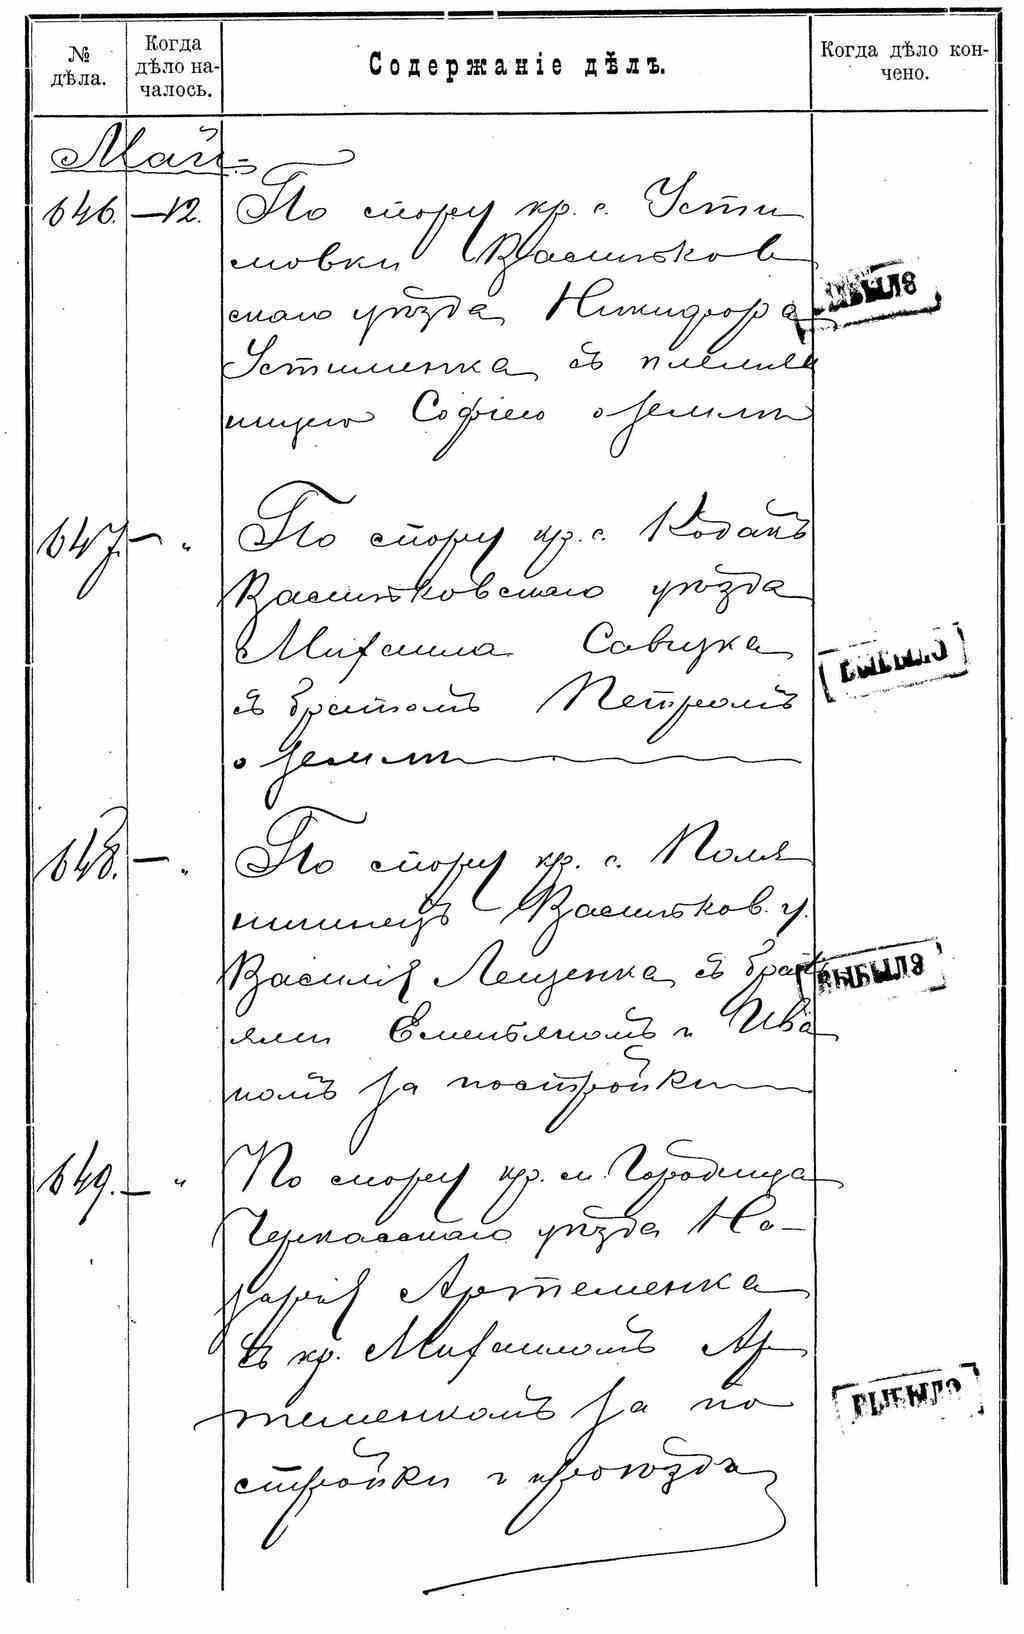 № дѣла.
Когда дѣло началось.
Содержаніе дѣлъ.
Когда дѣло кончено.
Май.
646. — 12. По спору кр. с. Усти
мовки Васильков
скаго уѣзда Никифора
Устименка съ племян
ницею Софіею о землѣ
ВЫБЫЛО
647. — „ По спору кр. с. Кодакъ
Васильковскаго уѣзда
Михаила Савчука
съ братомъ Петромъ
о землѣ
ВЫБЫЛО
648. — „ По спору кр. с. Поля
ниченецъ Васильков. у.
Василія Лещенка съ брать
ями Емельяномъ и Ива
номъ за постройки
ВЫБЫЛО
649. — „ По спору кр. м. Городища
Черкасскаго уѣзда На-
зарія Артеменка
съ кр. Михаиломъ Ар
теменкомъ за по
стройки и проѣзда
ВЫБЫЛО